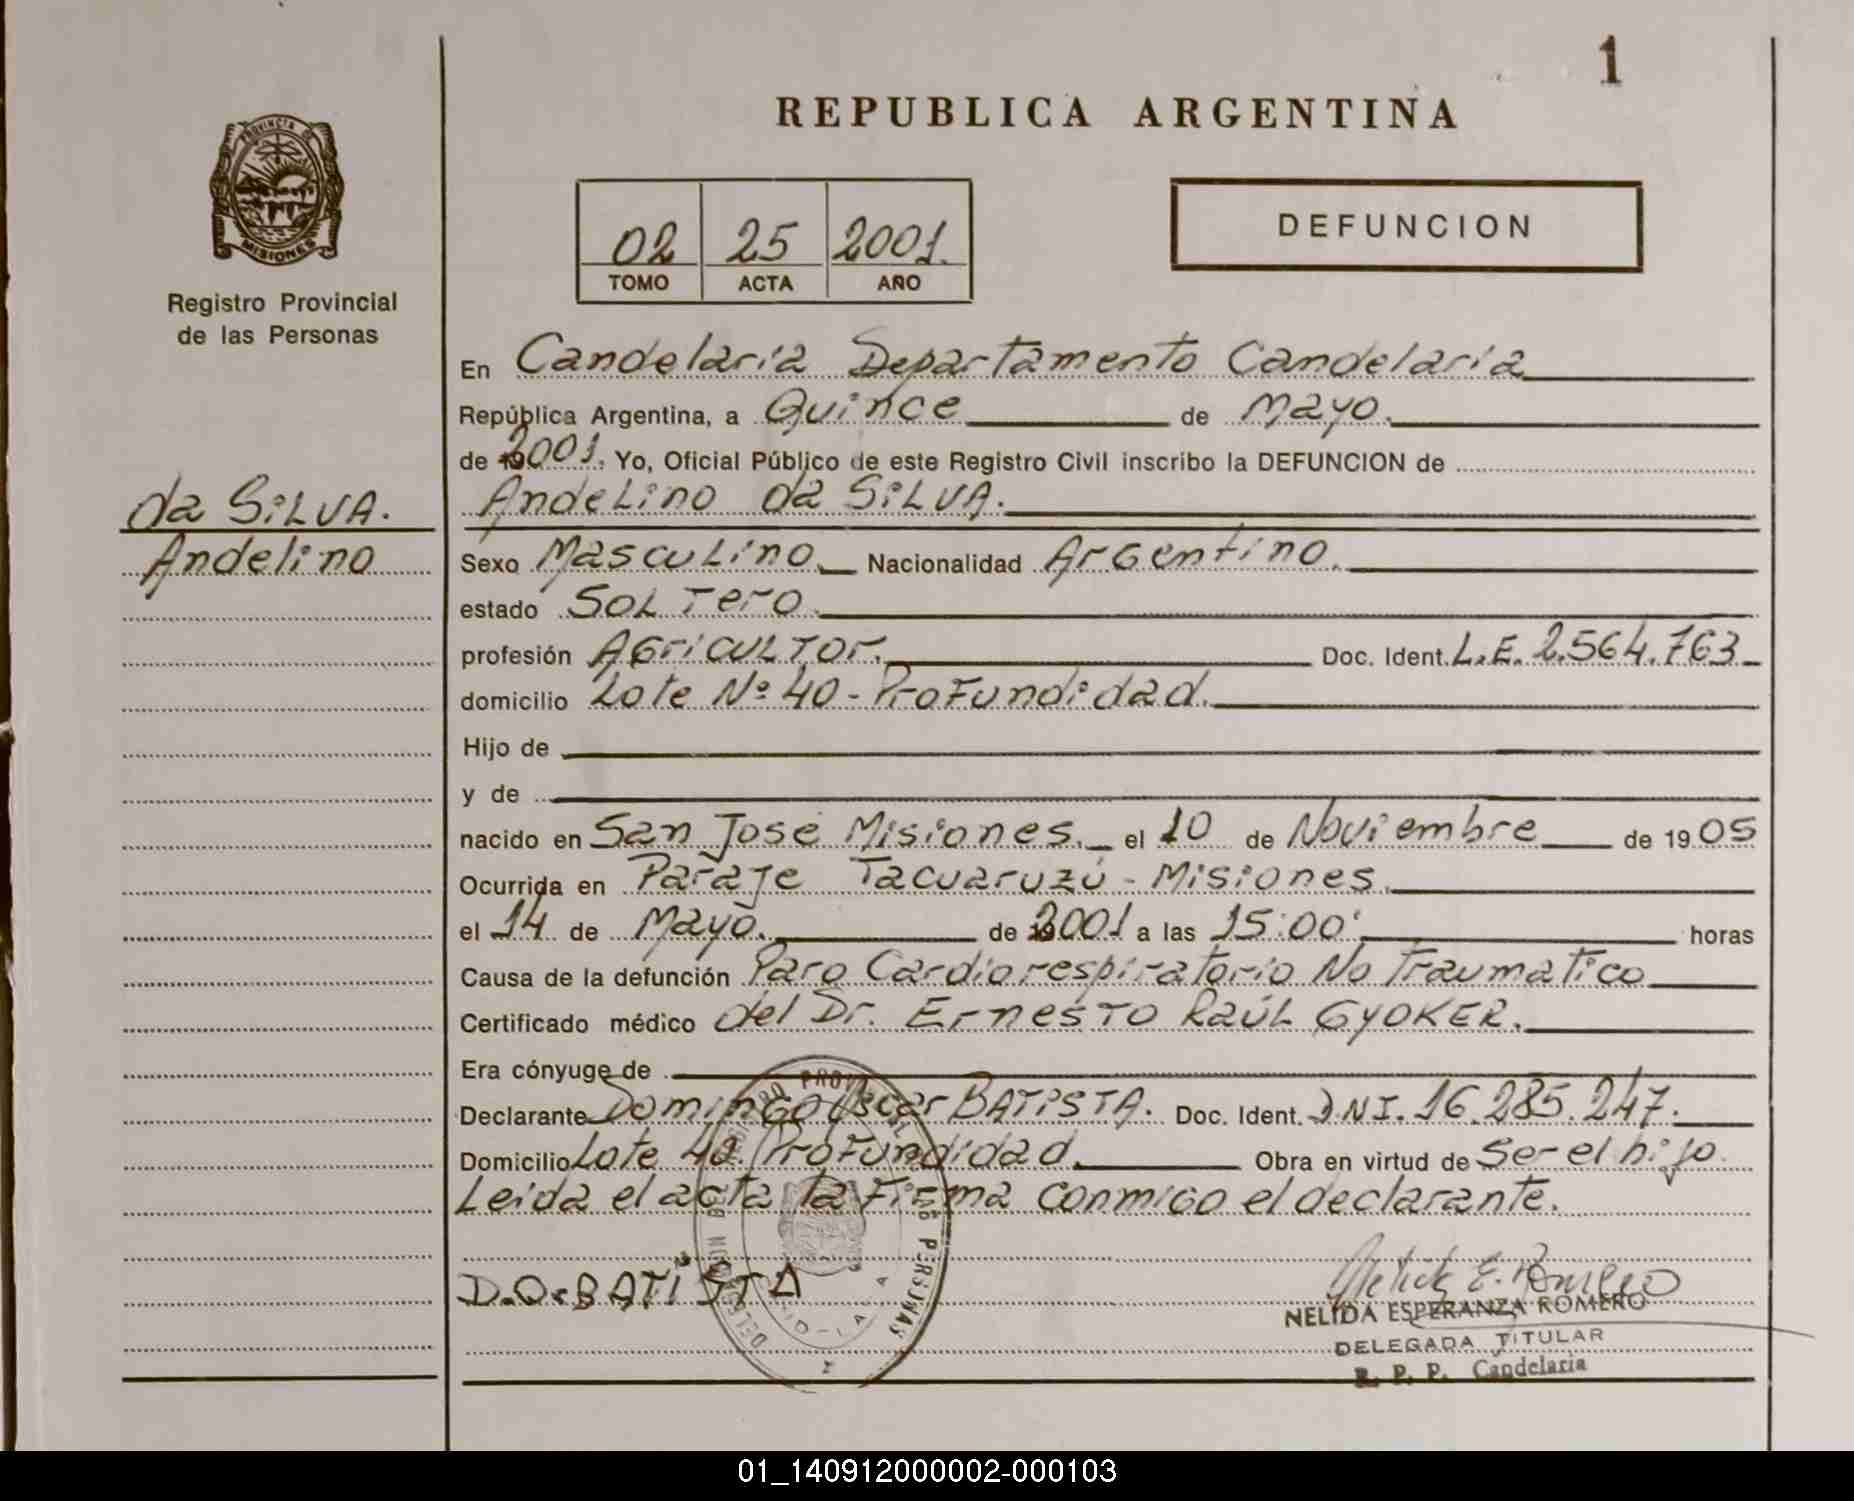 1
REPUBLICA ARGENTINA
PROVINCIA DE
MISIONES
Registro Provincial
de las Personas
02 25 2001.
TOMO ACTA AÑO
DEFUNCION
En Candelaria Departamento Candelaria
República Argentina, a Quince de Mayo.
de 2001. Yo, Oficial Público de este Registro Civil inscribo la DEFUNCION de
da SiLVA.
Andelino
AndeLino da SiLVA.
Sexo MascuLino. Nacionalidad ArGentino.
estado SoLTero
profesión AGriCULTor. Doc. Ident. L.E. 2.564.763
domicilio Lote Nº 40 - ProFundidad.
Hijo de
y de
nacido en San José Misiones. el 10 de Noviembre de 1905
Ocurrida en Paraje Tacuaruzú - Misiones.
el 14 de Mayo. de 2001 a las 15:00' horas
Causa de la defunción Paro Cardiorespiratorio No Traumatico
Certificado médico del Dr. ErnesTo RaúL GYOKER.
Era cónyuge de
Declarante Domingo Oscar BATiSTA. Doc. Ident. D.N.I. 16.285.247.
Domicilio Lote 40. ProFundidad Obra en virtud de Ser el hijo.
Leida el acta la Firma conmigo el declarante.
D.O.BATiSTA
NELIDA ESPERANZA ROMERO
DELEGADA TITULAR
R. P. P. Candelaria
01_140912000002-000103